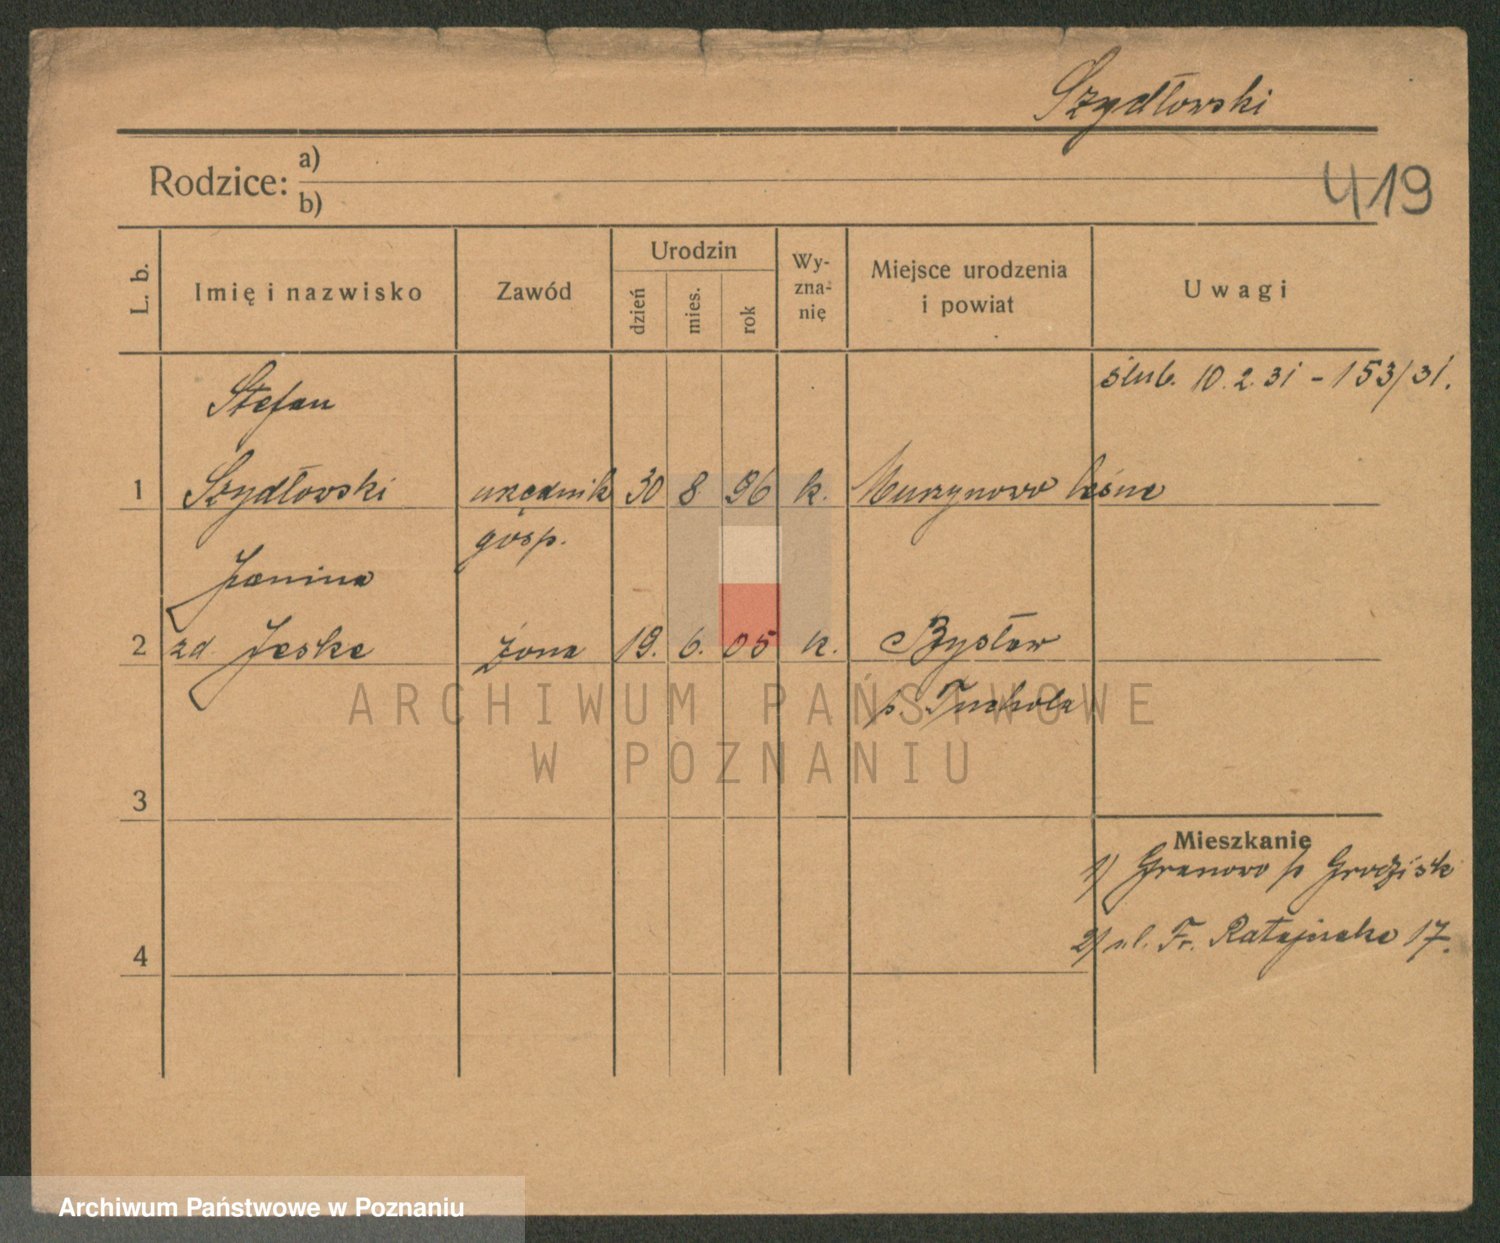 Szydłowski
419
Rodzice: a)
b)
L. b.
Imię i nazwisko
Zawód
Urodzin
dzień
mies.
rok
Wy-
zna-
nię
Miejsce urodzenia
i powiat
Uwagi
ślub. 10.2.31 - 153/31.
Stefan
1 Szydłowski urzędnik 30 8 96 k. Murzynowo leśne
gosp.
Janina
2 zd. Jeske żona 19. 6. 05 k. Bysław
p. Tuchola
3
Mieszkanie
1) Granowo p Grodzisk
2) ul. Fr. Ratajczaka 17.
4
ARCHIWUM PAŃSTWOWE
W POZNANIU
Archiwum Państwowe w Poznaniu